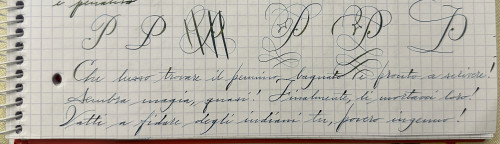 e pennino
P P P P P
Che lusso trovare il pennino, bagnato e pronto a scrivere!
Sembra magia, quasi! Finalmente, li mortacci loro!
Vatti a fidare degli indiani tu, povero ingenuo!